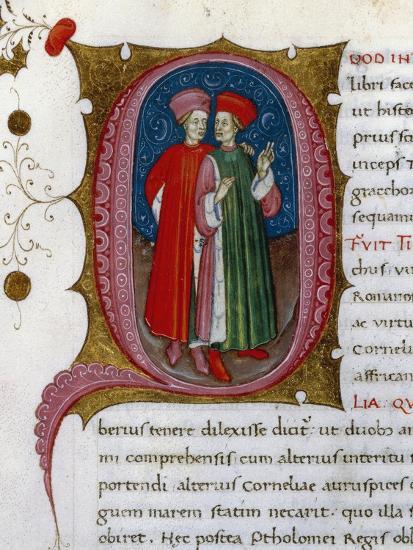 QOD IN
libri face
ut histo
prius scri
inceps T
graccho
sequam
FVIT TI
chus: vi
Romano
ac virtu
Corneli
affrican
LIA. QV
berius tenere dilexisse dicit̃ ut duob9 an
mi comprehensis cum alterius interitu
portendi alterius Corneliae auruspices
guem marem statim necarit. quo illa s
obiret. Hec postea Ptholomei Regis ob